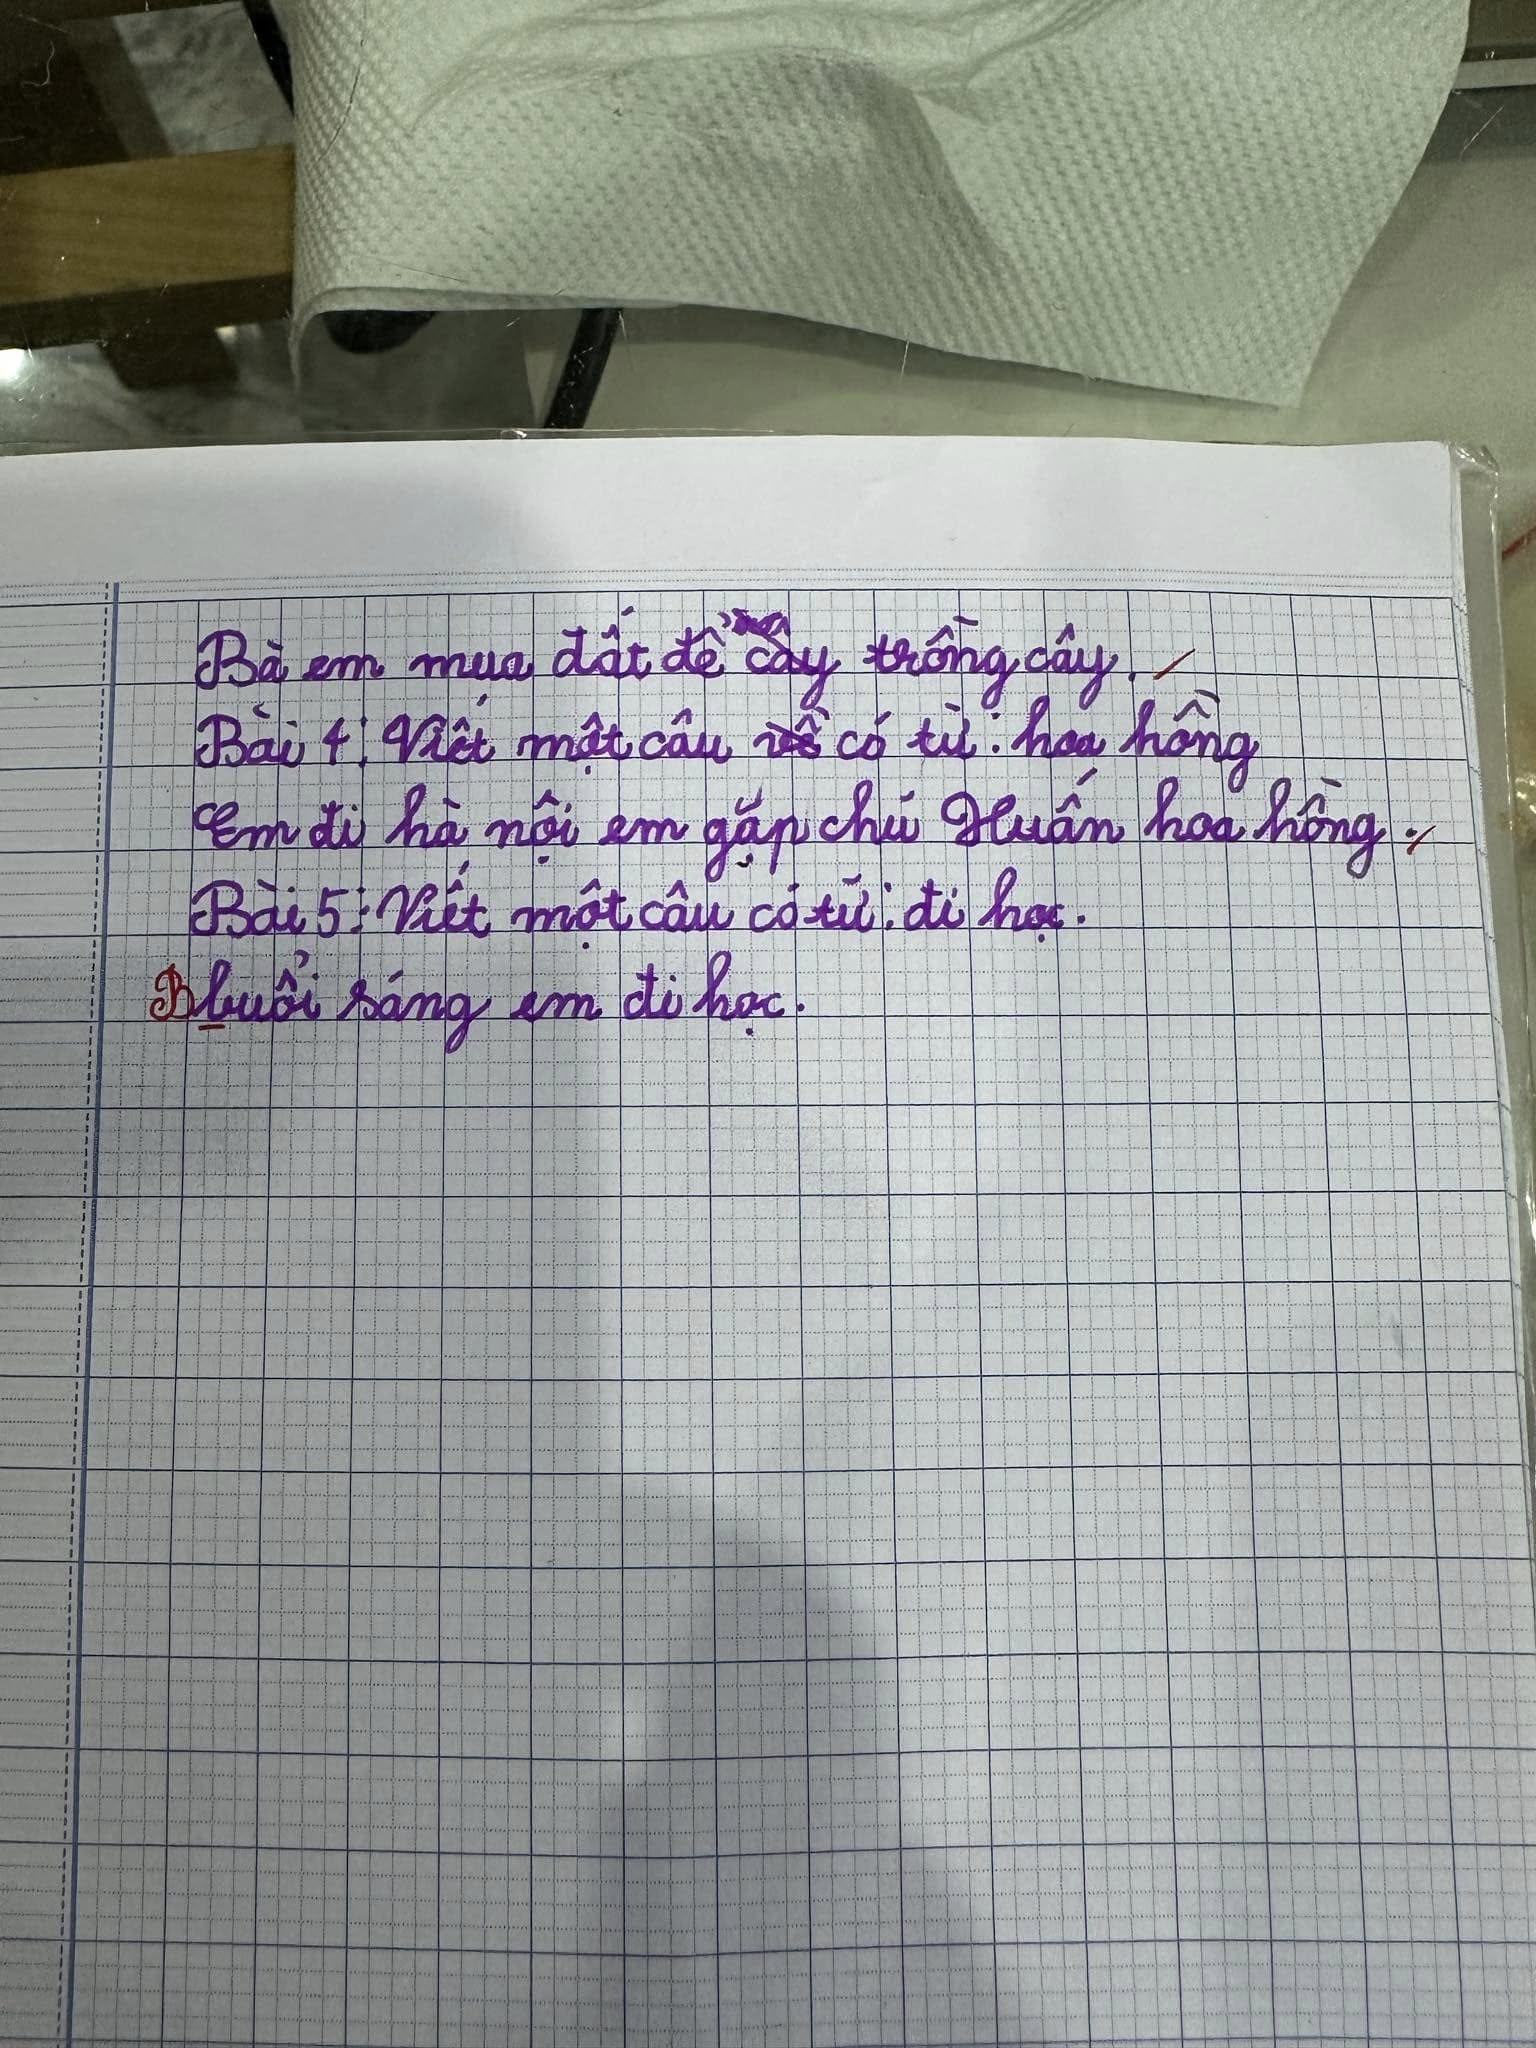 Bà em mua đất để cây trồng cây.
Bài 4: Viết một câu về có từ: hoa hồng
Em đi hà nội em gặp chú Huấn hoa hồng.
Bài 5: Viết một câu có từ: đi học.
B buổi sáng em đi học.